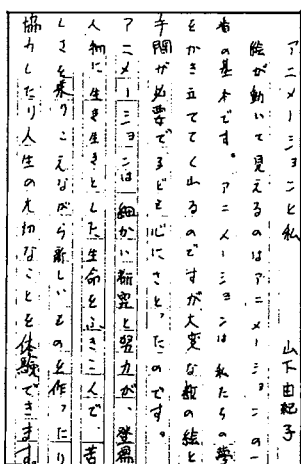 アニメーションと私
山下由紀子
絵が動いて見えるのはアニメーションの一
番の基本です。アニメーションは私たちの夢
をかき立ててくれるのですが大変な数の絵と
手間が必要で
ると心にさとったのです。
アニメーションは細かい研究と努力が、登場
人物に生き生きとした生命をふきこんで苦
しさを乗りこえながら新しいものを作ったり
協力したり人生の大切なことを体験できます。